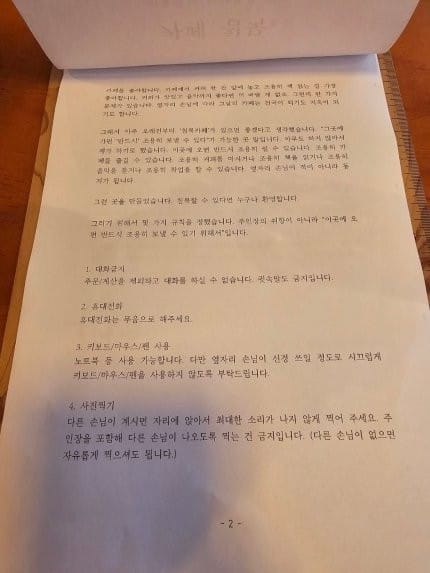 카페를 좋아합니다. 카페에서 커피 한 잔 앞에 놓고 조용히 책 읽는 걸 가장
좋아합니다. 커피가 맛있고 음악까지 좋다면 더 바랄 게 없죠. 그런데 한 가지
문제가 있습니다. 옆자리 손님에 따라 그날의 카페는 천국이 되기도 지옥이 되
기도 합니다.
그래서 아주 오래전부터 '침묵카페'가 있으면 좋겠다고 생각했습니다. "그곳에
가면 '반드시' 조용히 보낼 수 있다"가 가능한 곳 말입니다. 아무도 하지 않아서
제가 하기로 했습니다. 이곳에 오면 반드시 조용히 쉴 수 있습니다. 조용히 카
페를 즐길 수 있습니다. 조용히 커피를 마시거나 조용히 책을 읽거나 조용히
음악을 듣거나 조용히 작업을 할 수 있습니다. 옆자리 손님이 적이 아니라 동
지가 됩니다.
그런 곳을 만들었습니다. 침묵할 수 있다면 누구나 환영합니다.
그러기 위해서 몇 가지 규칙을 정했습니다. 주인장의 취향이 아니라 "이곳에 오
면 반드시 조용히 보낼 수 있기 위해서"입니다.
1. 대화금지
주문/계산을 제외하고 대화를 하실 수 없습니다. 귓속말도 금지입니다.
2. 휴대전화
휴대전화는 무음으로 해주세요.
3. 키보드/마우스/펜 사용
노트북 등 사용 가능합니다. 다만 옆자리 손님이 신경 쓰일 정도로 시끄럽게
키보드/마우스/펜을 사용하지 않도록 부탁드립니다.
4. 사진찍기
다른 손님이 계시면 자리에 앉아서 최대한 소리가 나지 않게 찍어 주세요. 주
인장을 포함해 다른 손님이 나오도록 찍는 건 금지입니다. (다른 손님이 없으면
자유롭게 찍으셔도 됩니다.)
- 2 -